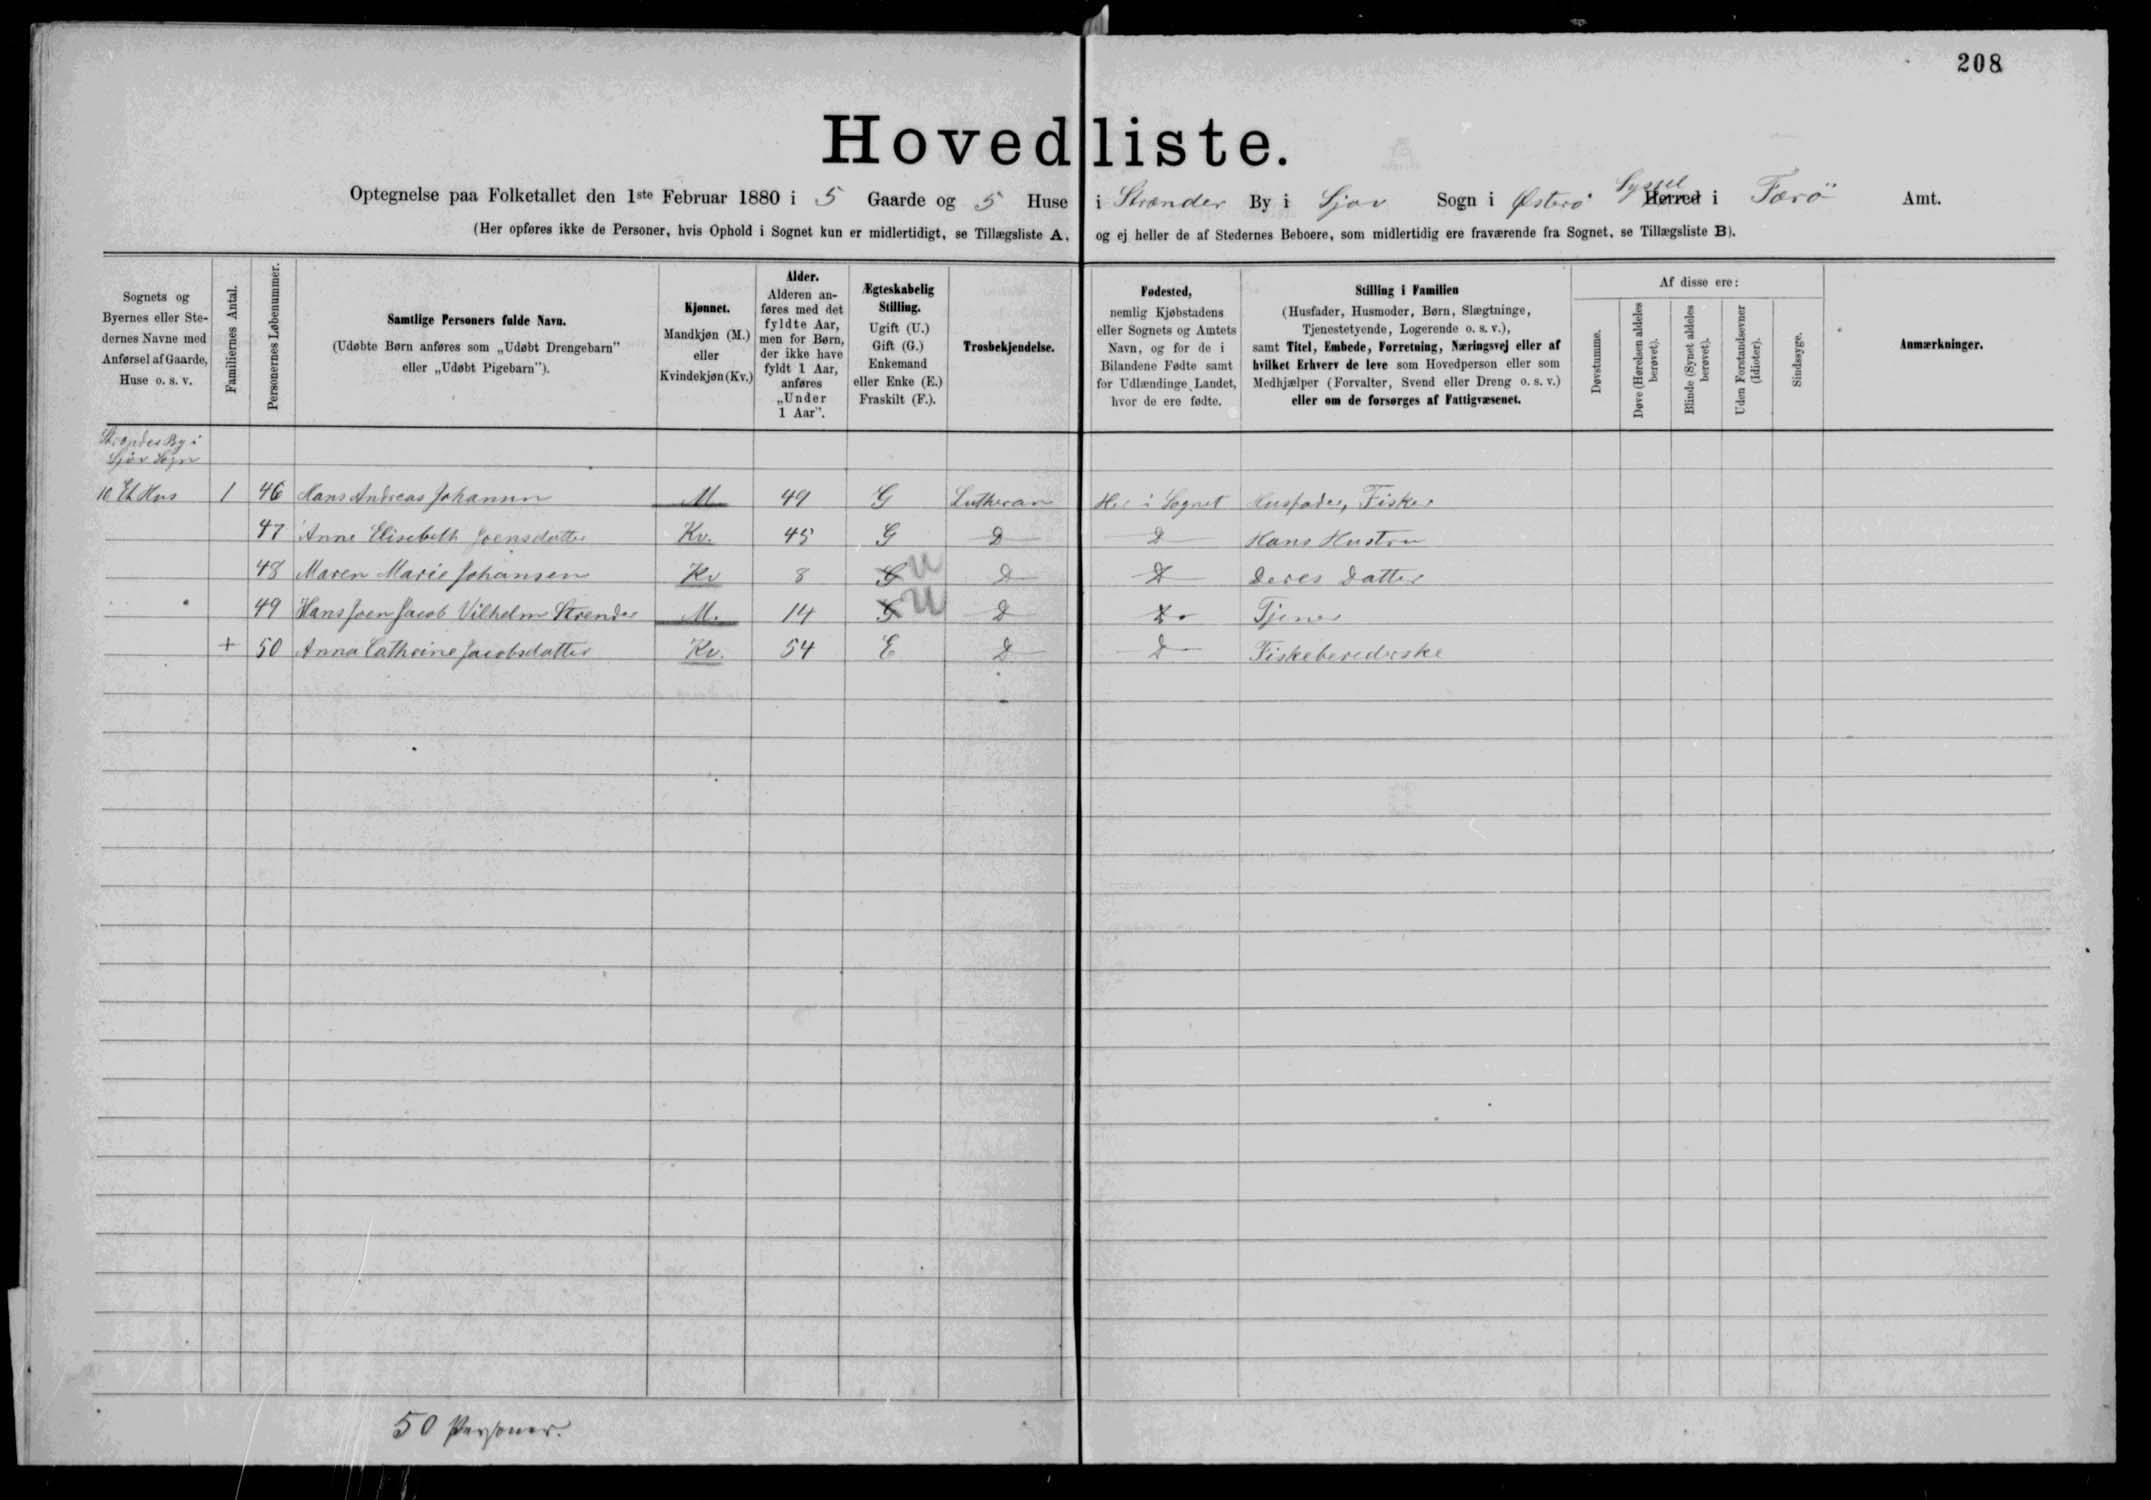 208
Hovedliste.
Optegnelse paa Folketallet den 1ste Februar 1880 i 5 Gaarde og 5 Huse i Strænder By i Sjov Sogn i Østerö Syssel Herred i Færö Amt.
(Her opføres ikke de Personer, hvis Ophold i Sognet kun er midlertidigt, se Tillægsliste A, og ej heller de af Stedernes Beboere, som midlertidig ere fraværende fra Sognet, se Tillægsliste B).
Sognets og Byernes eller Stedernes Navne med Anførsel af Gaarde, Huse o. s. v.
Familiernes Antal.
Personernes Løbenummer.
Samtlige Personers fulde Navn.
(Udøbte Børn anføres som „Udøbt Drengebarn" eller „Udøbt Pigebarn").
Kjønnet.
Mandkjøn (M.) eller Kvindekjøn (Kv.)
Alder.
Alderen anføres med det fyldte Aar, men for Børn, der ikke have fyldt 1 Aar, anføres „Under 1 Aar".
Ægteskabelig Stilling.
Ugift (U.) Gift (G.) Enkemand eller Enke (E.) Fraskilt (F.).
Trosbekjendelse.
Fødested,
nemlig Kjøbstadens eller Sognets og Amtets Navn, og for de i Bilandene Fødte samt for Udlændinge Landet, hvor de ere fødte.
Stilling i Familien
(Husfader, Husmoder, Børn, Slægtninge, Tjenestetyende, Logerende o. s. v.), samt Titel, Embede, Forretning, Næringsvej eller af hvilket Erhverv de leve som Hovedperson eller som Medhjælper (Forvalter, Svend eller Dreng o. s. v.) eller om de forsørges af Fattigvæsenet.
Af disse ere:
Døvstumme.
Døve (Hørelsen aldeles berøvet).
Blinde (Synet aldeles berøvet).
Uden Forstandsevner (Idioter).
Sindssyge.
Anmærkninger.
Strænder By i
Sjov Sogn
10 Et Hus 1 46 Hans Andreas Johansen M. 49 G Lutheran Her i Sognet Husfader, Fisker
47 Anne Elisebeth Joensdatter Kv. 45 G D D Hans Hustru
48 Maren Marie Johansen Kv 8 G U D D Deres Datter
49 Hans Joen Jacob Vilhelm Strender M. 14 G U D Do Tjener
+ 50 Anna Cathrine Jacobsdatter Kv. 54 E D D Fiskeberederske
50 Personer.